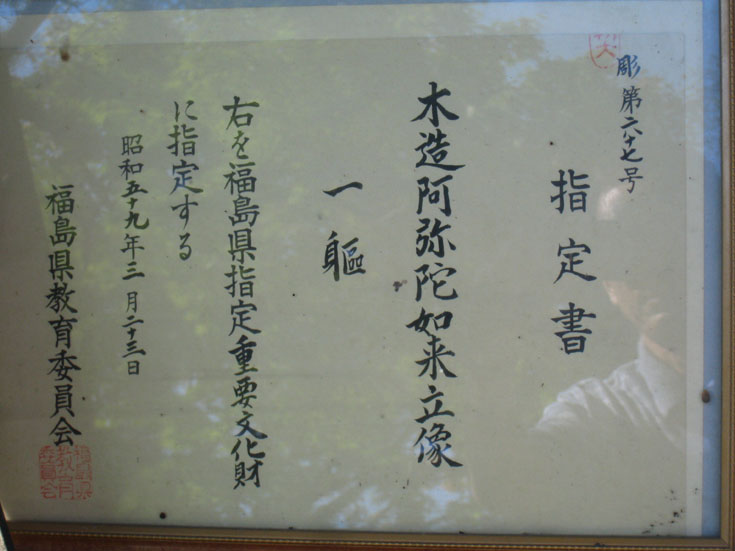 彫第六十七号
指定書
木造阿弥陀如来立像
一躯
右を福島県指定重要文化財
に指定する
昭和五十九年三月二十三日
福島県教育委員会